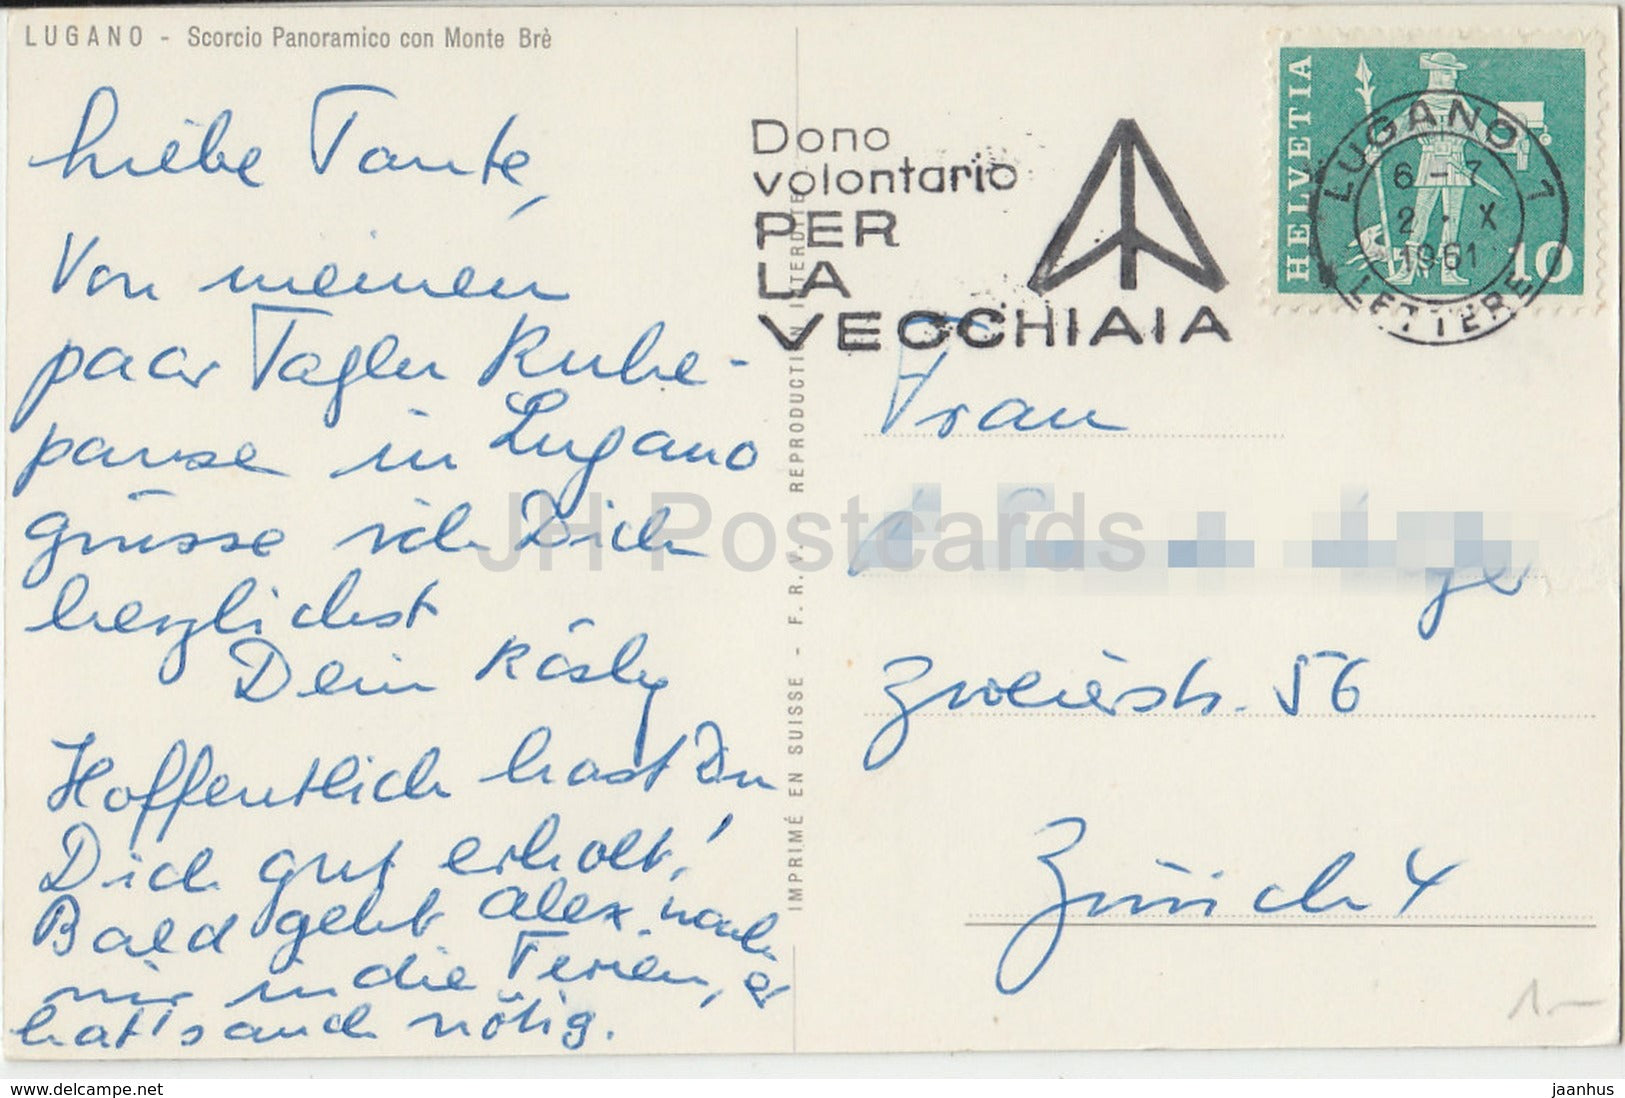 LUGANO - Scorcio Panoramico con Monte Brè
Liebe Tante,
Von meinen
paar Tagen Ruhe-
pause in Lugano
grüsse ich Dich
herzlichst
Dein Rösly
Hoffentlich hast Du
Dich gut erholt!
Bald geht Alex nach
mir in die Ferien, er
hat's auch nötig.
IMPRIMÉ EN SUISSE - F. R. V. REPRODUCTION INTERDITE
Dono
volontario
PER
LA
VECCHIAIA
HELVETIA
10
LUGANO 1
6-7
2·X
1961
LETTERE
Frau
Zweierstr. 56
Zürich 4
1-
JH Postcards
www.delcampe.net
jaanhus